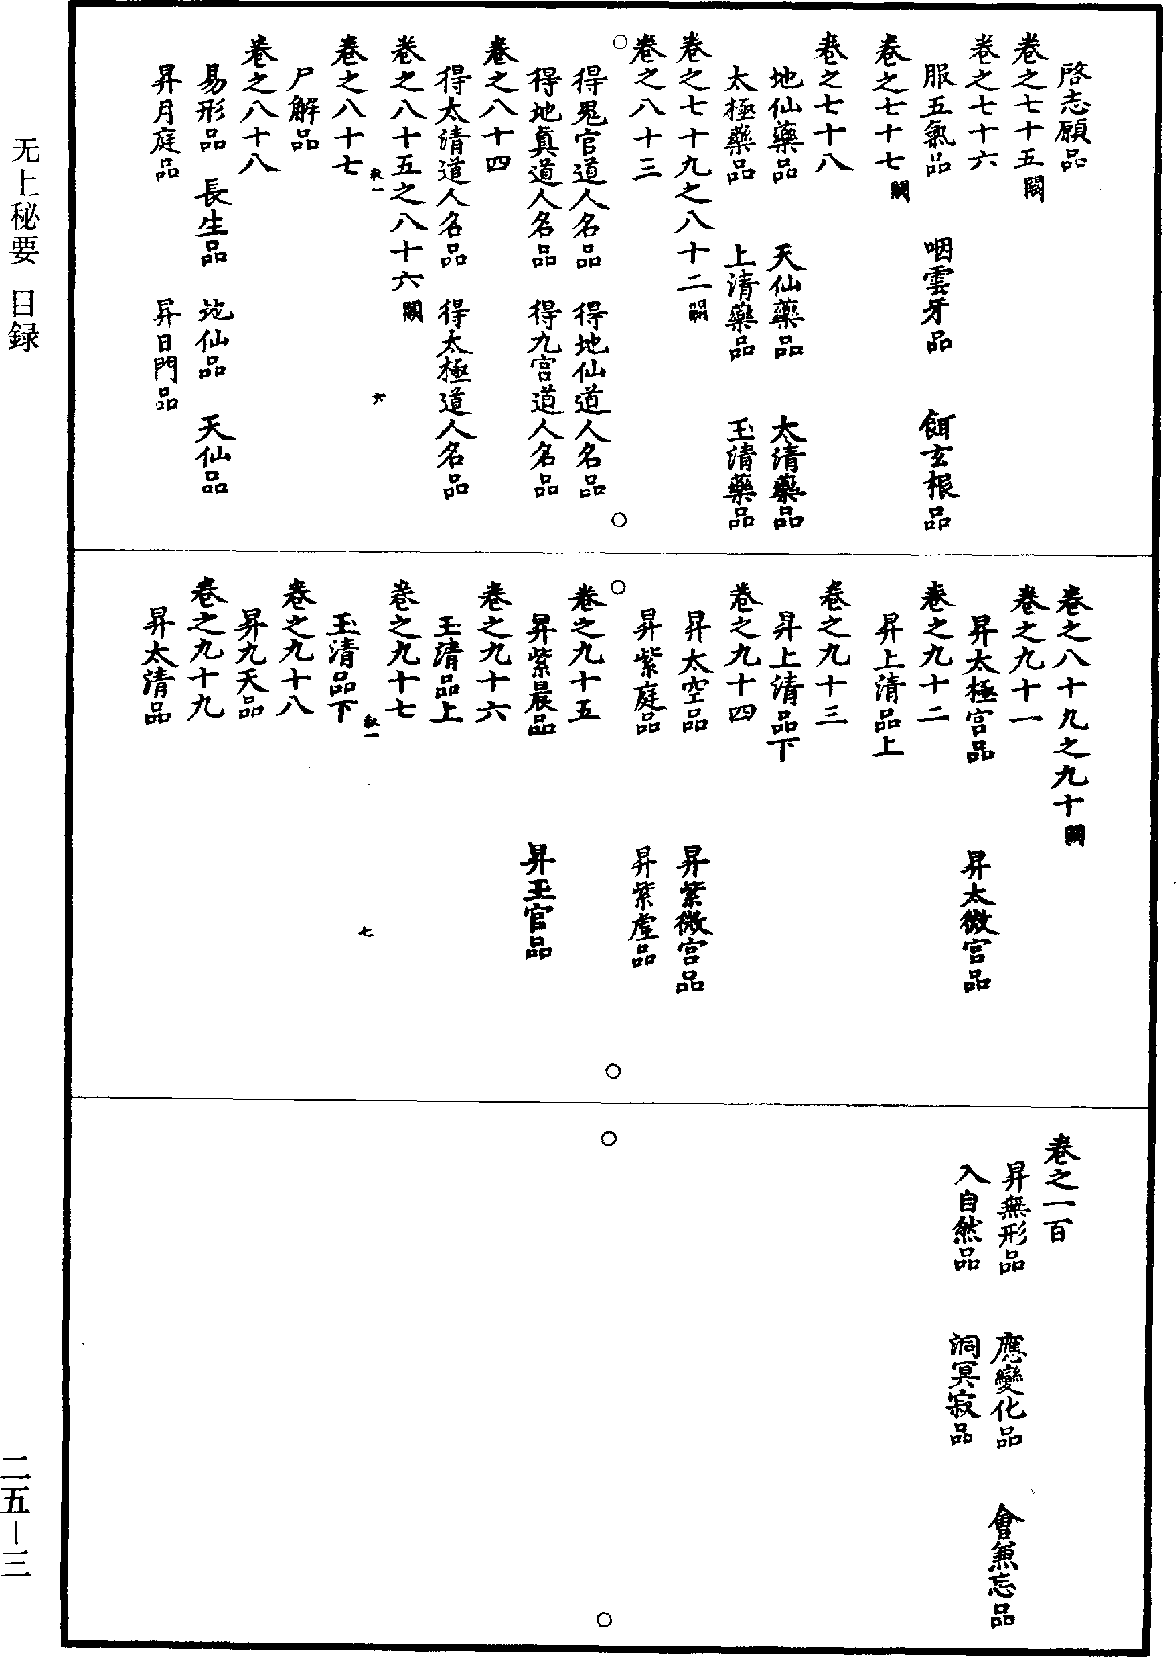 啓志願品
卷之七十五闕
卷之七十六
服五氣品　咽雲牙品　餌玄根品
卷之七十七闕
卷之七十八
地仙藥品　天仙藥品　太清藥品
太極藥品　上清藥品　玉清藥品
卷之七十九之八十二闕
卷之八十三
得鬼官道人名品　得地仙道人名品
得地真道人名品　得九宮道人名品
卷之八十四
得太清道人名品　得太極道人名品
卷之八十五之八十六闕
六
卷之八十七
尸解品
卷之八十八
易形品　長生品　地仙品　天仙品
昇月庭品　昇日門品
卷之八十九之九十闕
卷之九十一
昇太極宮品　昇太微宮品
卷之九十二
昇上清品上
卷之九十三
昇上清品下
卷之九十四
昇太空品　昇紫微宮品
昇紫庭品　昇紫虛品
卷之九十五
昇紫晨品　昇玉官品
卷之九十六
玉清品上
卷之九十七
七
玉清品下
卷之九十八
昇九天品
卷之九十九
昇太清品
卷之一百
昇無形品　應變化品　會兼忘品
入自然品　洞冥寂品
无上秘要　目録
二五—三